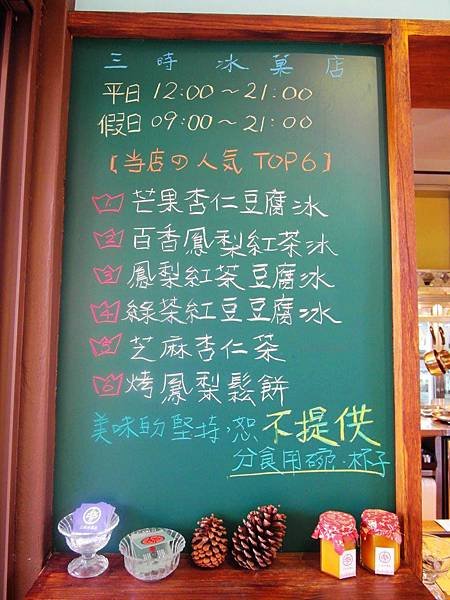 三時 冰菓店
平日 12:00～21:00
假日 09:00～21:00
【当店の人気 TOP6】
1 芒果杏仁豆腐冰
2 百香鳳梨紅茶冰
3 鳳梨紅茶豆腐冰
4 綠茶紅豆豆腐冰
5 芝麻杏仁茶
6 烤鳳梨鬆餅
美味的堅持，恕不提供
分食用碗、杯子